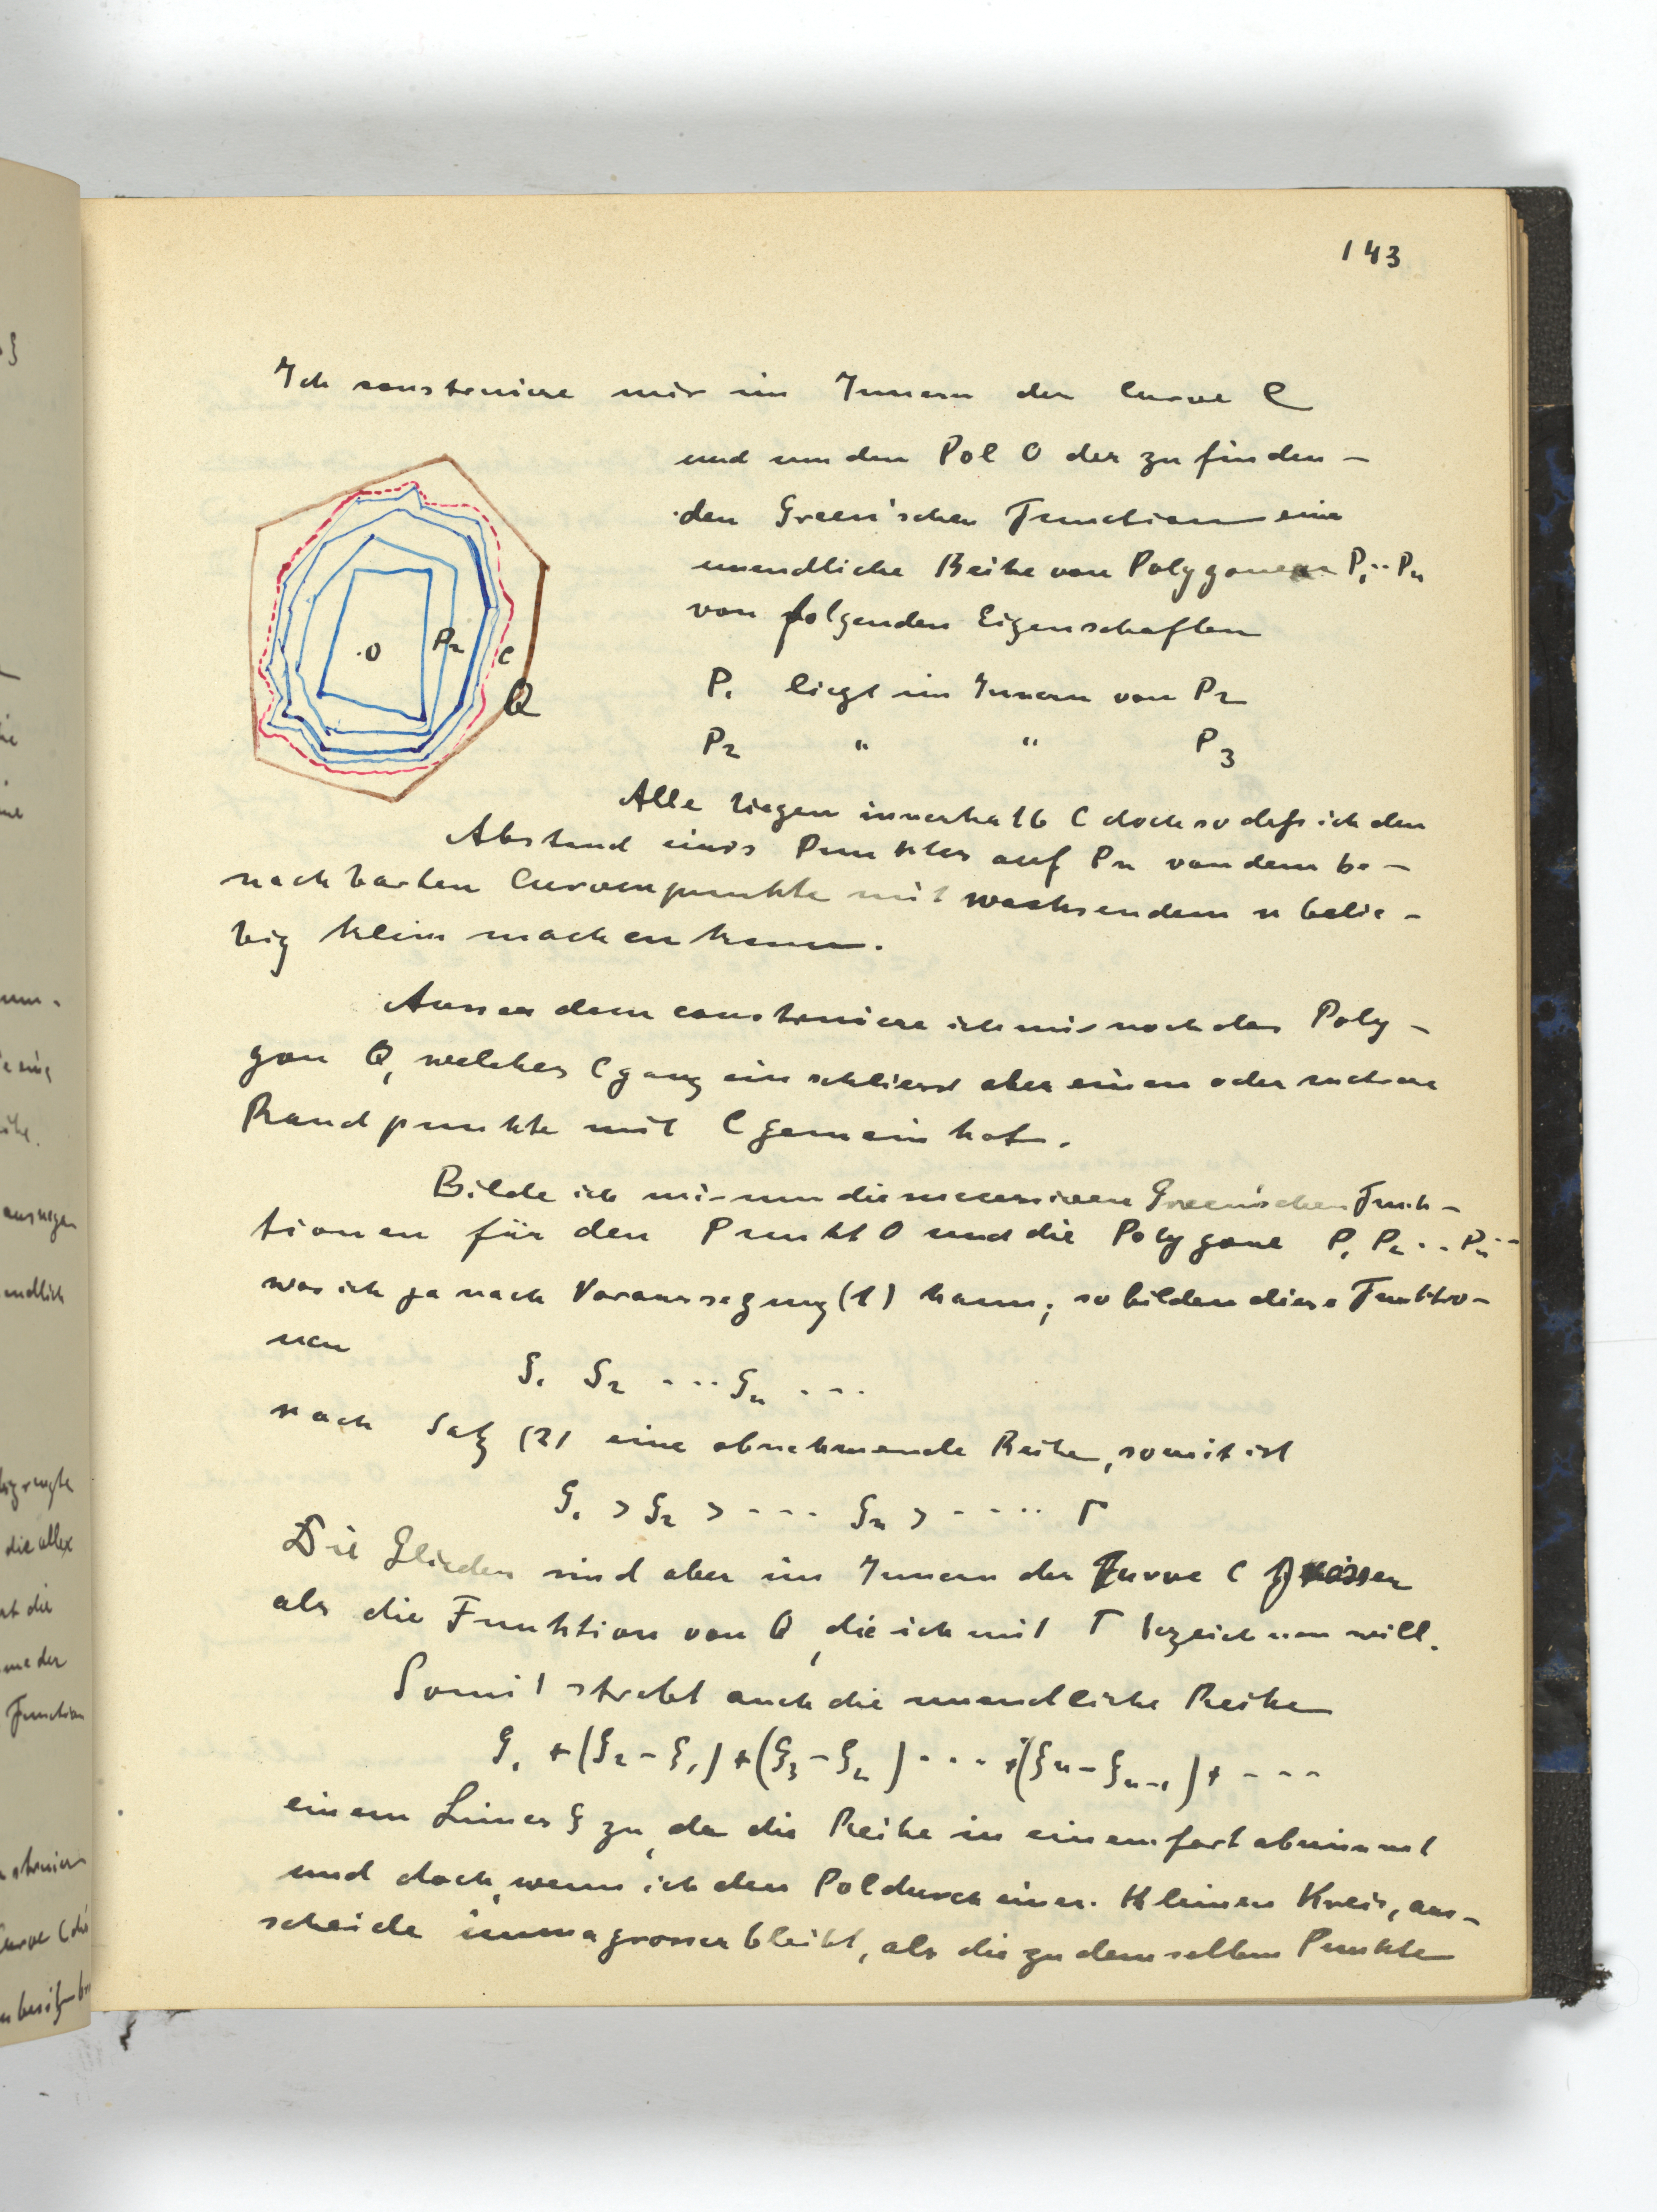 143
Ich construiere mir im Innern der Curve C
und um den Pol O der zu finden-
den Green'schen Function eine
unendliche Reihe von Polygonen P1..Pn
von folgenden Eigenschaften
P1 liegt im Innern von P2
P2 " " P3
O P2 C
Q
Alle liegen innerhalb C doch so dass ich den
Abstand eines Punktes auf Pn von dem be-
nachbarten Curvenpunkte mit wachsendem n belie-
big klein machen kann.
Ausserdem construiere ich mir noch das Poly-
gon Q, welches C ganz einschliesst aber einen oder mehrere
Randpunkte mit C gemein hat.
Bilde ich mir nun die successiven Green'schen Funk-
tionen für den Punkt O und die Polygone P1 P2 .. Pn ..
was ich ja nach Voraussezung (1) kann, so bilden diese Funktio-
nen
g1 g2 ... gn ...
nach Satz (2) eine abnehmende Reihe, somit ist
g1 > g2 > ... gn > .... Γ
Die Glieder sind aber im Innern der Curve C
als die Funktion von Q, die ich mit Γ bezeichnen will.
Somit strebt auch die unendliche Reihe
g1 + (g2 - g1) + (g3 - g2) .... + (gn - gn-1) + ...
einem Limes g zu, da die Reihe in einem fort abnimmt
und doch, wenn ich den Pol durch einen kleinen Kreis, aus-
scheide immer grosser bleibt, als die zu demselben Punkte